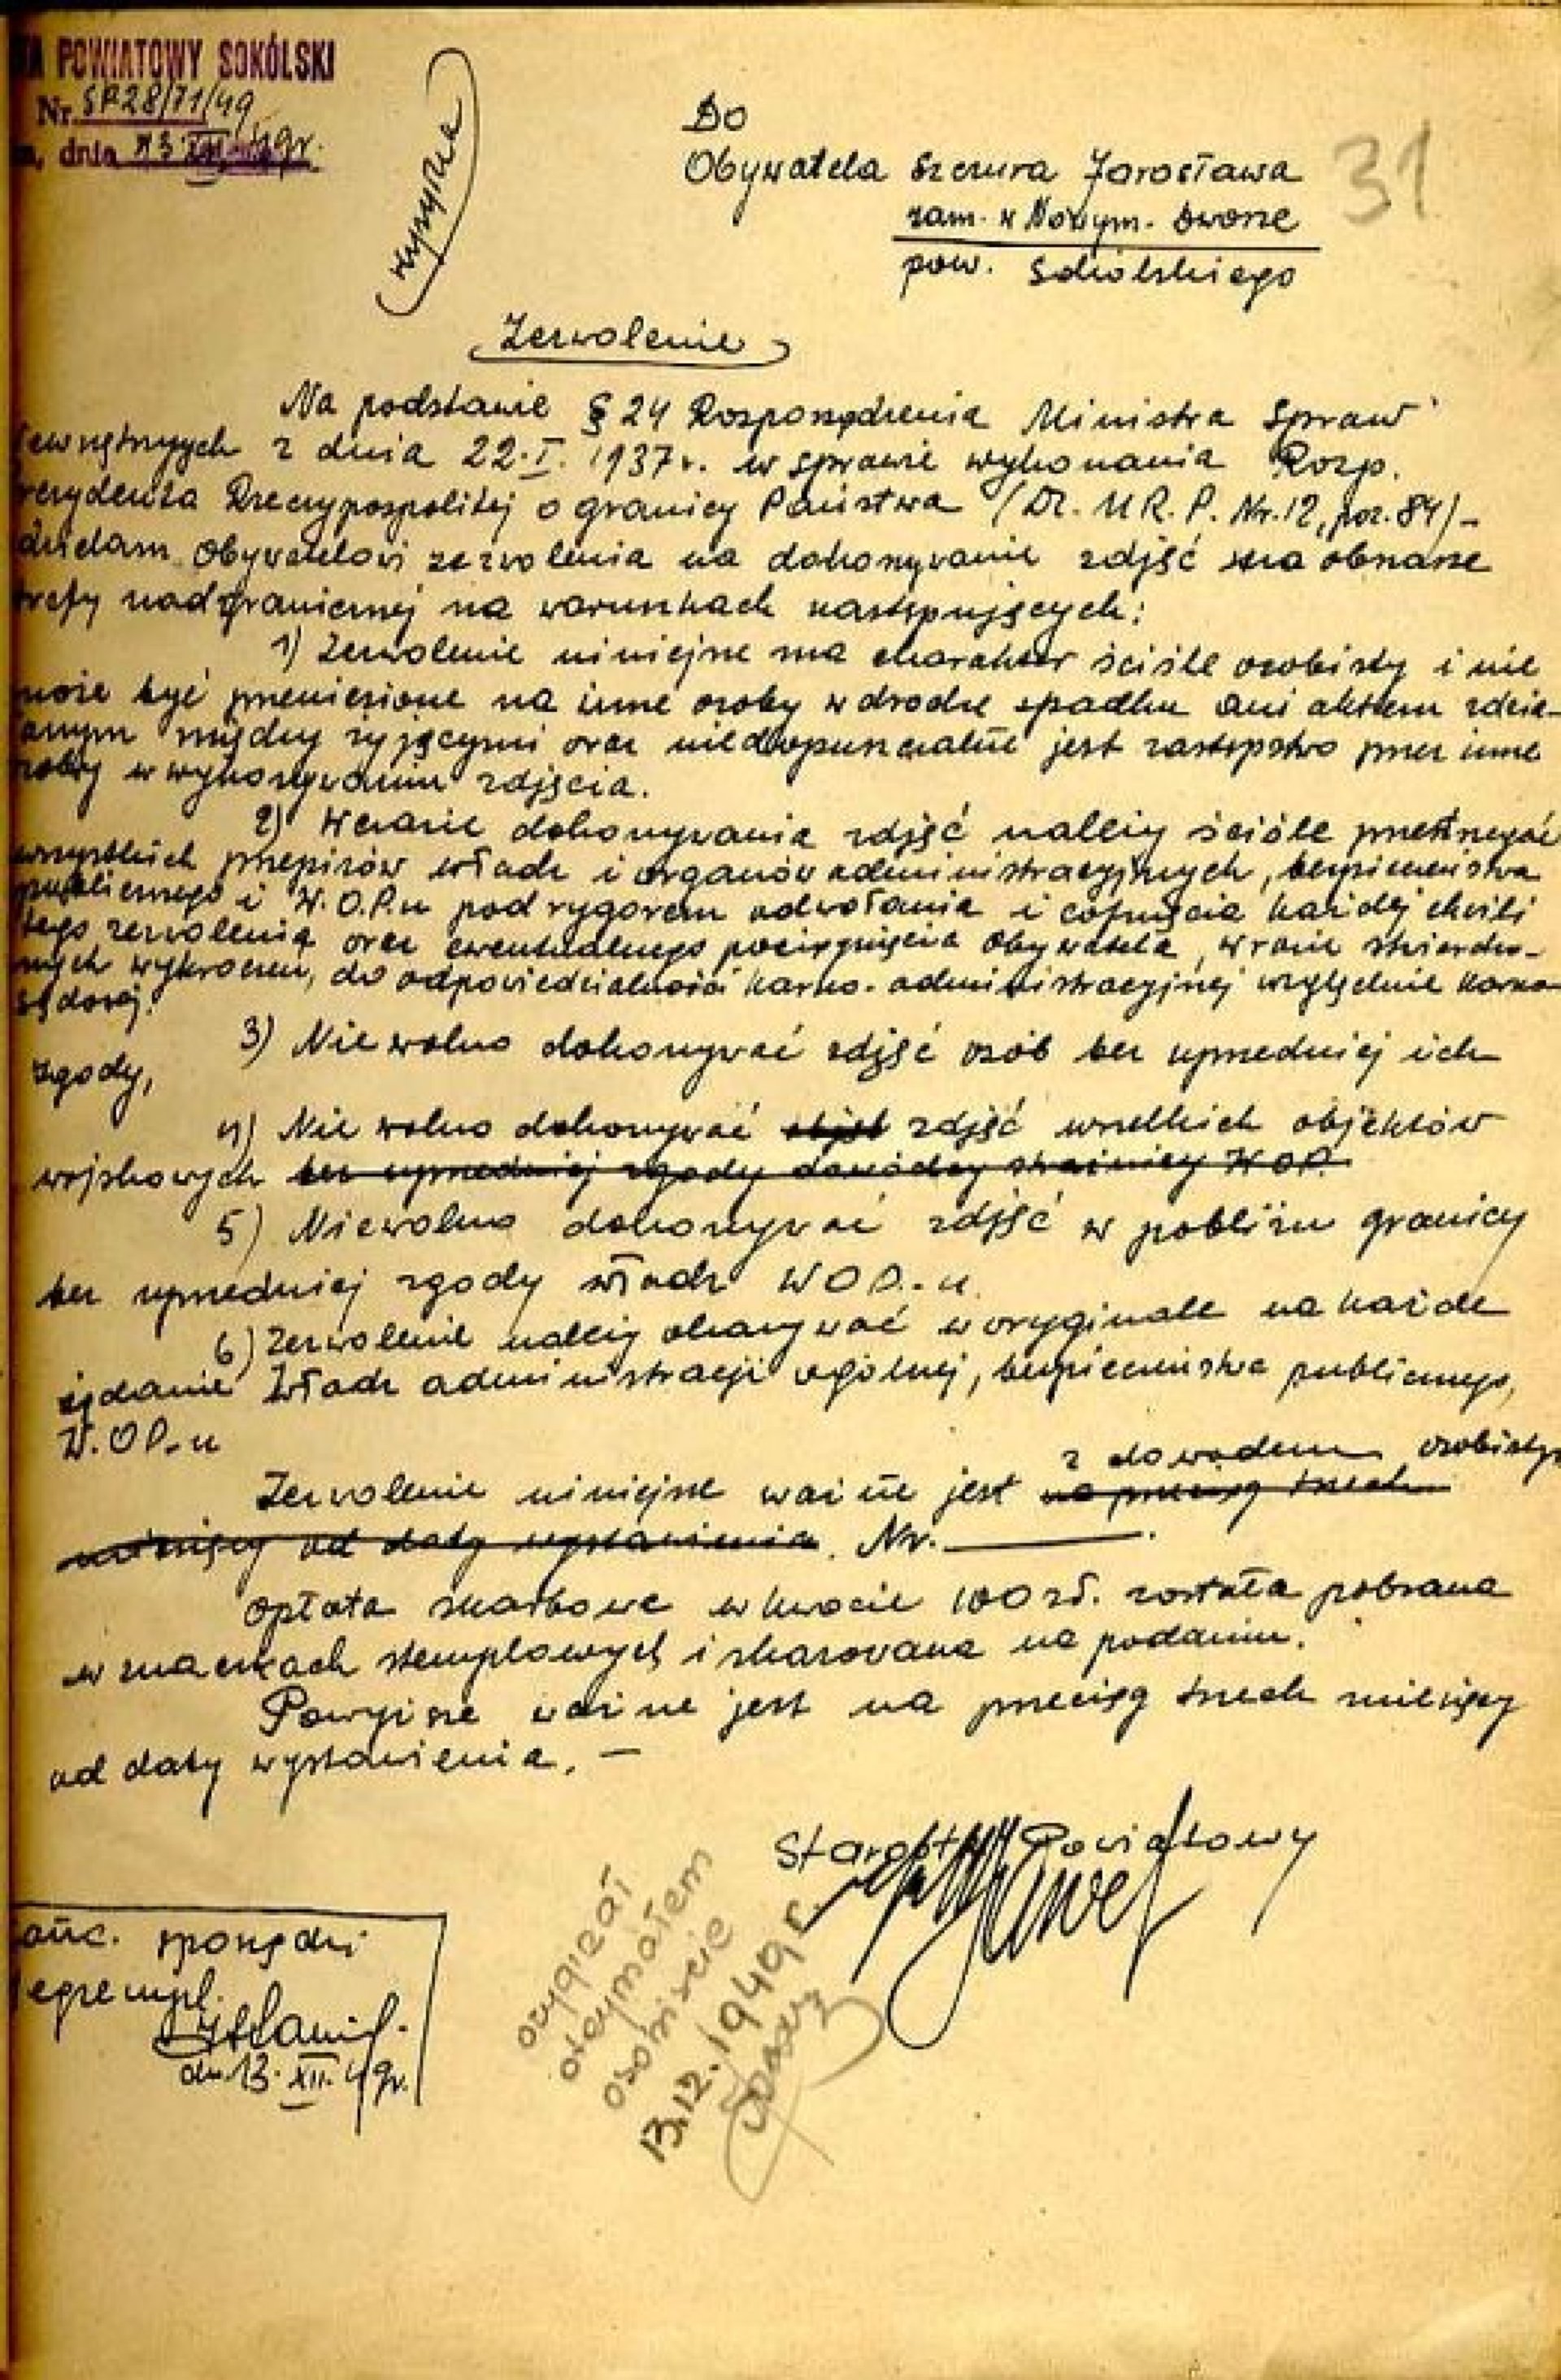 POWIATOWY SOKÓLSKI
Nr. SP28/71/49
, dnia 13 XII 49r.
Do
Obywatela Szczura Jarosława
31
zam. w Nowym. Dworze
pow. Sokólskiego
Zezwolenie
Na podstawie § 24 Rozporządzenia Ministra Spraw
ewnętrznych z dnia 22.I.1937r. w sprawie wykonania Rozp.
rezydenta Rzeczypospolitej o granicy Państwa (Dz. U R. P. Nr. 12, poz. 84) -
dzielam Obywatelowi zezwolenia na dokonywanie zdjęć na obszarze
trefy nadgranicznej na warunkach następujących:
1) Zezwolenie niniejsze ma charakter ściśle osobisty i nie
może być przeniesione na inne osoby w drodze spadku ani aktem zdzia-
anym między żyjącymi oraz niedopuszczalne jest zastępstwo przez inne
soby w wykonywaniu zdjęcia.
2) W czasie dokonywania zdjęć należy ściśle przestrzegać
wszystkich przepisów władz i organów administracyjnych, bezpieczeństwa
publicznego i W.O.P.u pod rygorem odwołania i cofnięcia każdej chwili
tego zezwolenia oraz ewentualnego pociągnięcia Obywatela, w razie stwierdzo-
nych wykroczeń, do odpowiedzialności karno-administracyjnej względnie karno-
sądowej.
3) Nie wolno dokonywać zdjęć osób bez uprzedniej ich
zgody,
4) Nie wolno dokonywać zdjęć wszelkich objektów
wojskowych bez uprzedniej zgody dowódcy strażnicy W.O.P.
5) Niewolno dokonywać zdjęć w pobliżu granicy
bez uprzedniej zgody władz WOP.-u
6) Zezwolenie należy okazywać w oryginale na każde
żądanie Władz administracji ogólnej, bezpieczeństwa publicznego,
W.OP.-u
z dowodem osobisty
Zezwolenie niniejsze ważne jest na przeciąg trzech
miesięcy od daty wystawienia. Nr. ______.
Opłata skarbowa w kwocie 100 zł. została pobrana
w znaczkach stemplowych i skasowana na podaniu.
Powyższe ważne jest na przeciąg trzech miesięcy
od daty wystawienia. —
Starosta Powiatowy
anc. sporządzi
egzempl.
dn. 13. XII. 49r.
orygizał
otrzymałem
osobiście
13.12.1949 r.